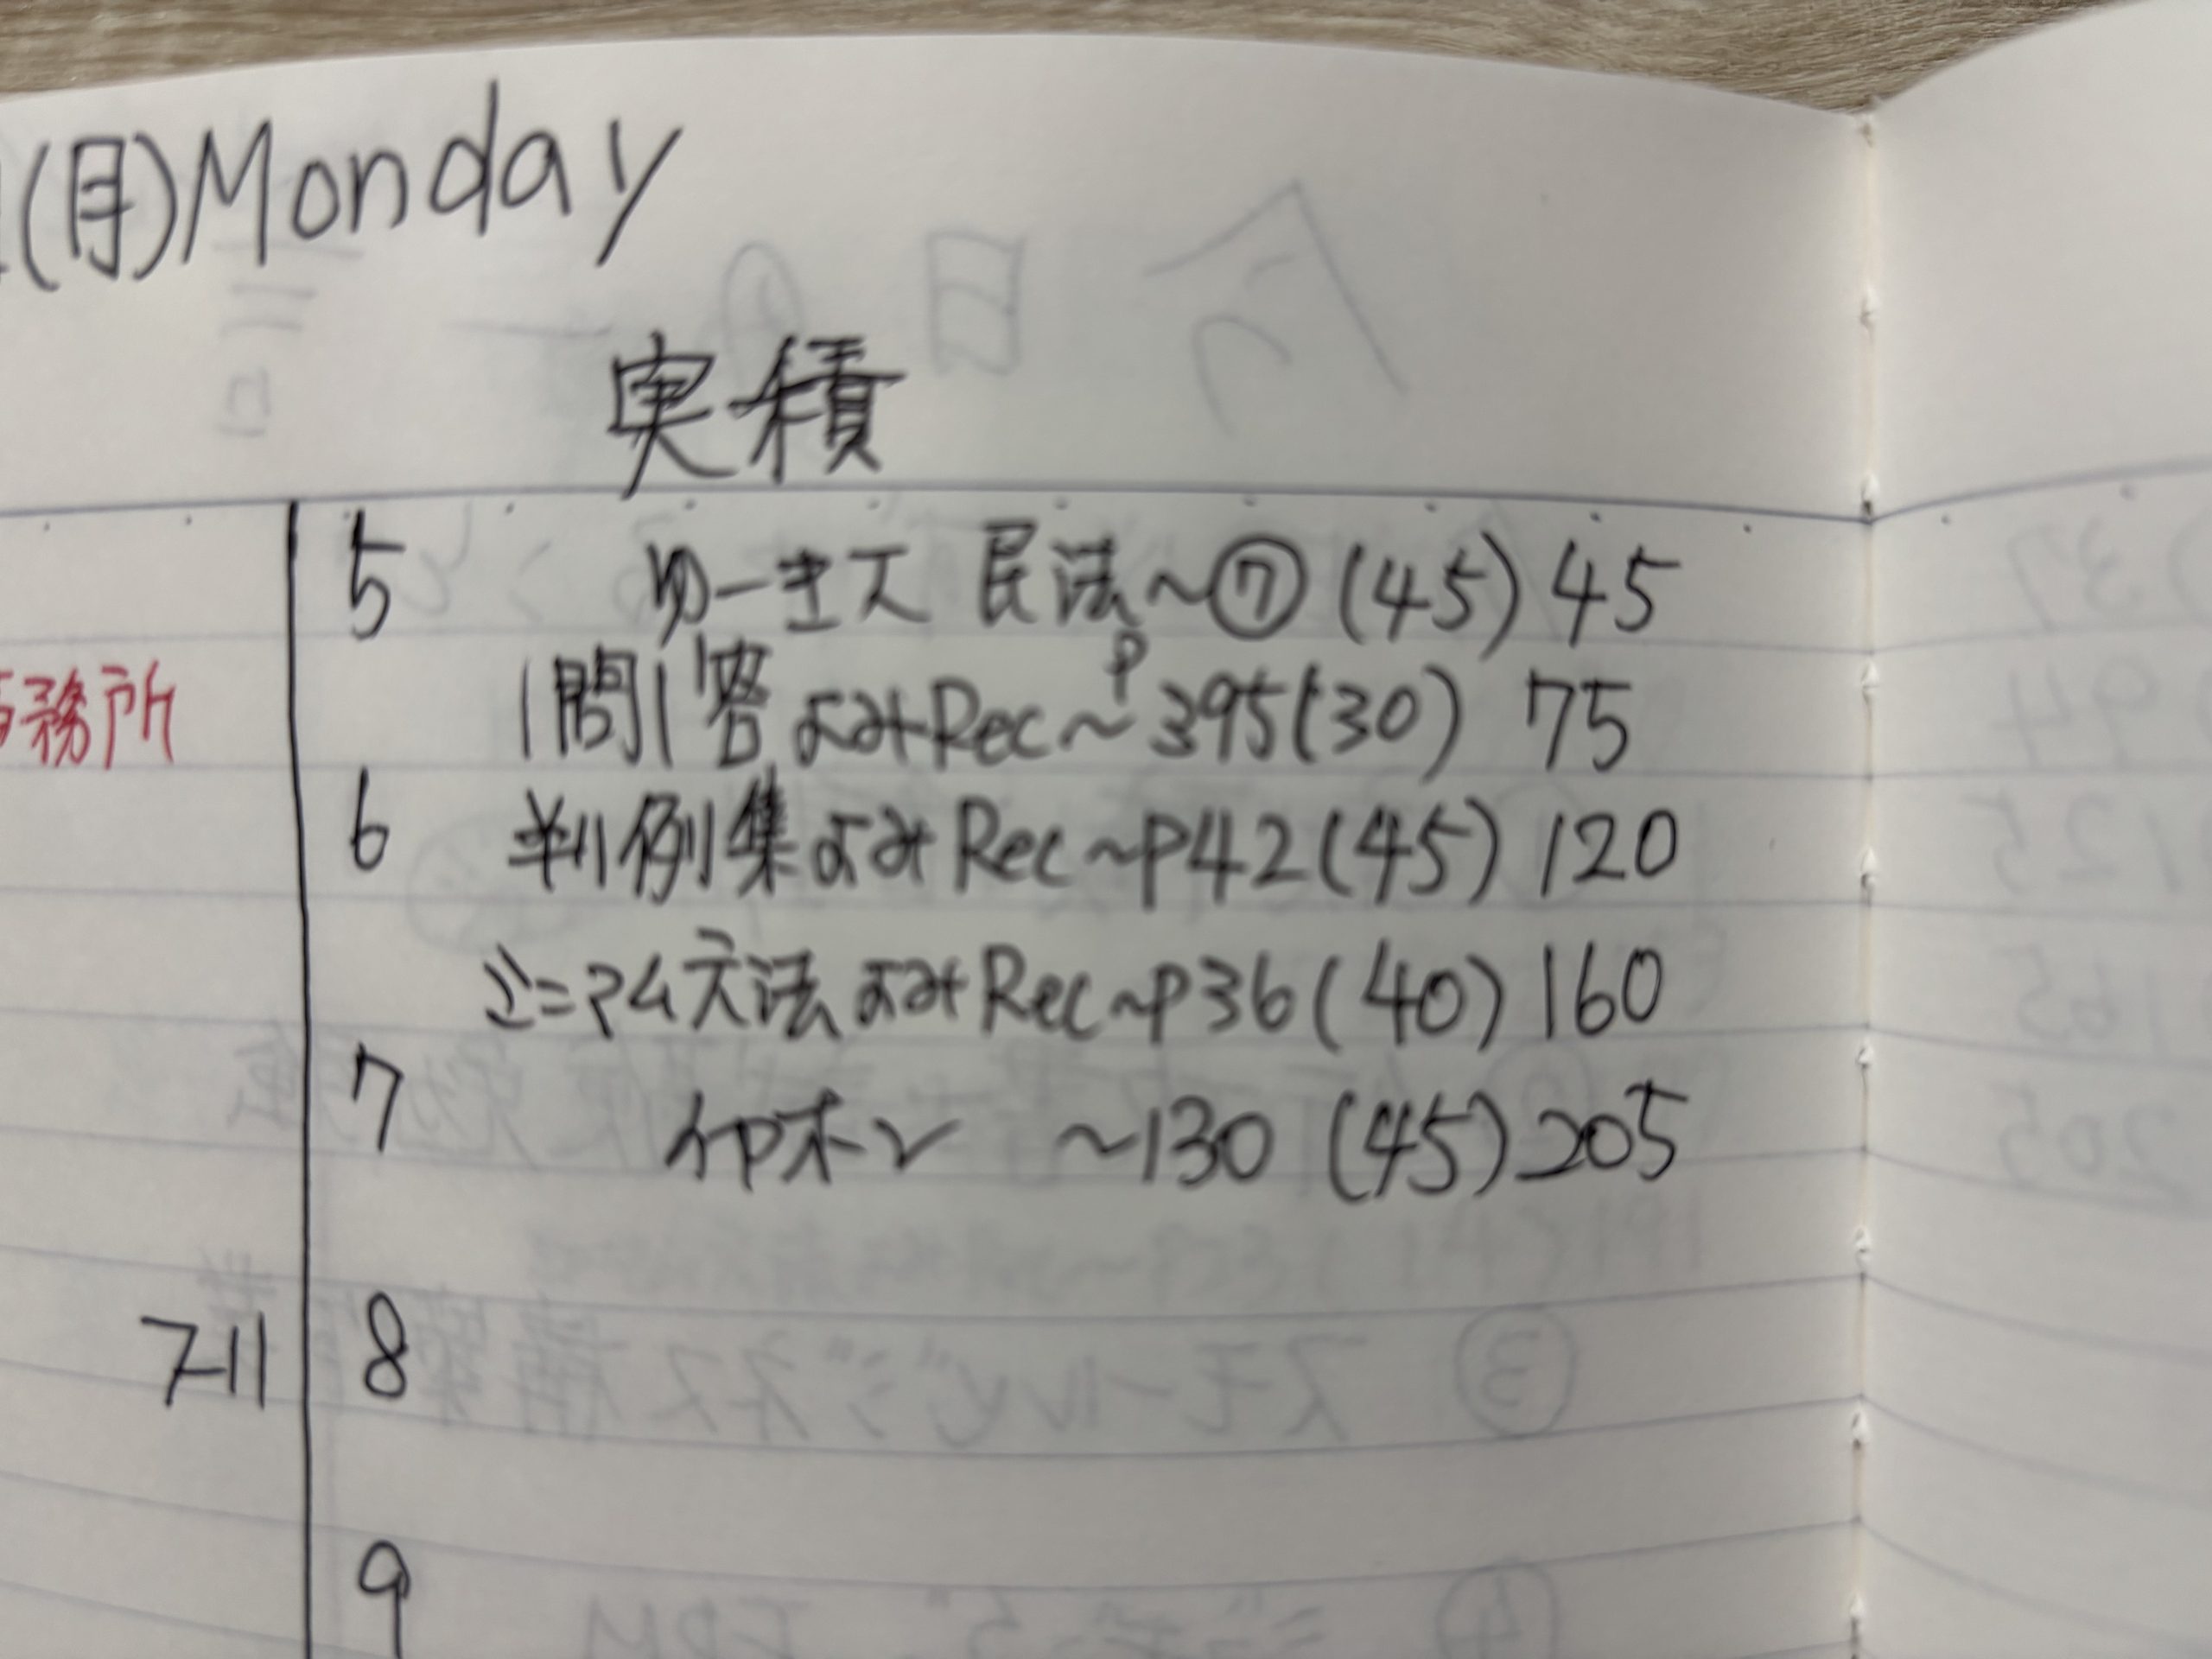 (月)Monday
実積
5 ゆーきス 民法~⑦ (45) 45
1問1答 よみRec~P395(30) 75
務所
6 判例集よみRec~P42(45) 120
ミニマム 法よみRec~P36(40) 160
7 イヤホン ~130 (45) 205
7-11 8
9